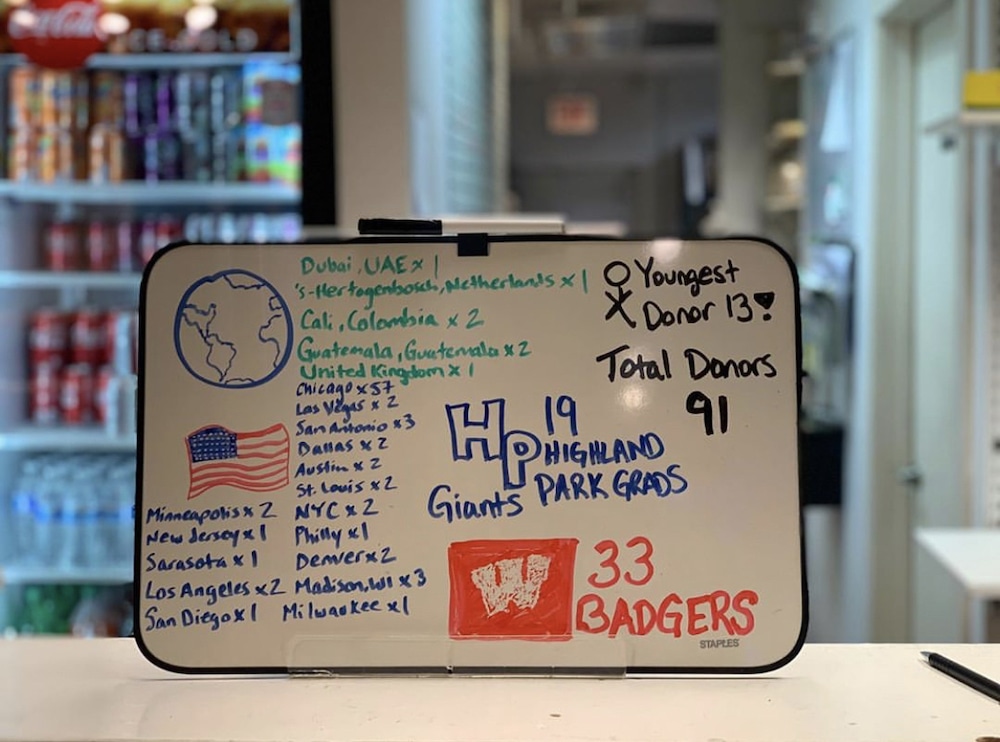 Coca-Cola
ICE COLD
Dubai, UAE x 1
's-Hertogenbosch, Netherlands x 1
Cali, Colombia x 2
Guatemala, Guatemala x 2
United Kingdom x 1
Chicago x 57
Las Vegas x 2
San Antonio x 3
Dallas x 2
Austin x 2
St. Louis x 2
NYC x 2
Philly x 1
Denver x 2
Madison, WI x 3
Milwaukee x 1
Minneapolis x 2
New Jersey x 1
Sarasota x 1
Los Angeles x 2
San Diego x 1
Youngest
Donor 13
Total Donors
91
HP 19
HIGHLAND
PARK GRADS
Giants
W
33
BADGERS
STAPLES